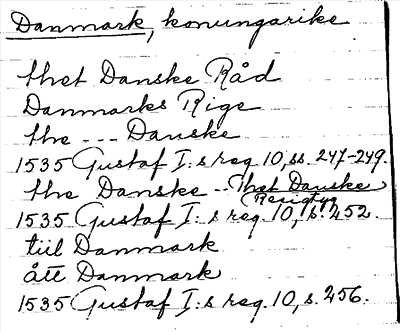 Danmark, konungarike
thet Danske Råd
Danmarks Rige
the --- Danske
1535 Gustaf I:s reg. 10, ss. 247-249.
the Danske -- Thet Danske
1535 Gustaf I:s reg. 10, s. 252.
till Danmark
ått Danmark
1535 Gustaf I:s reg. 10, s. 256.